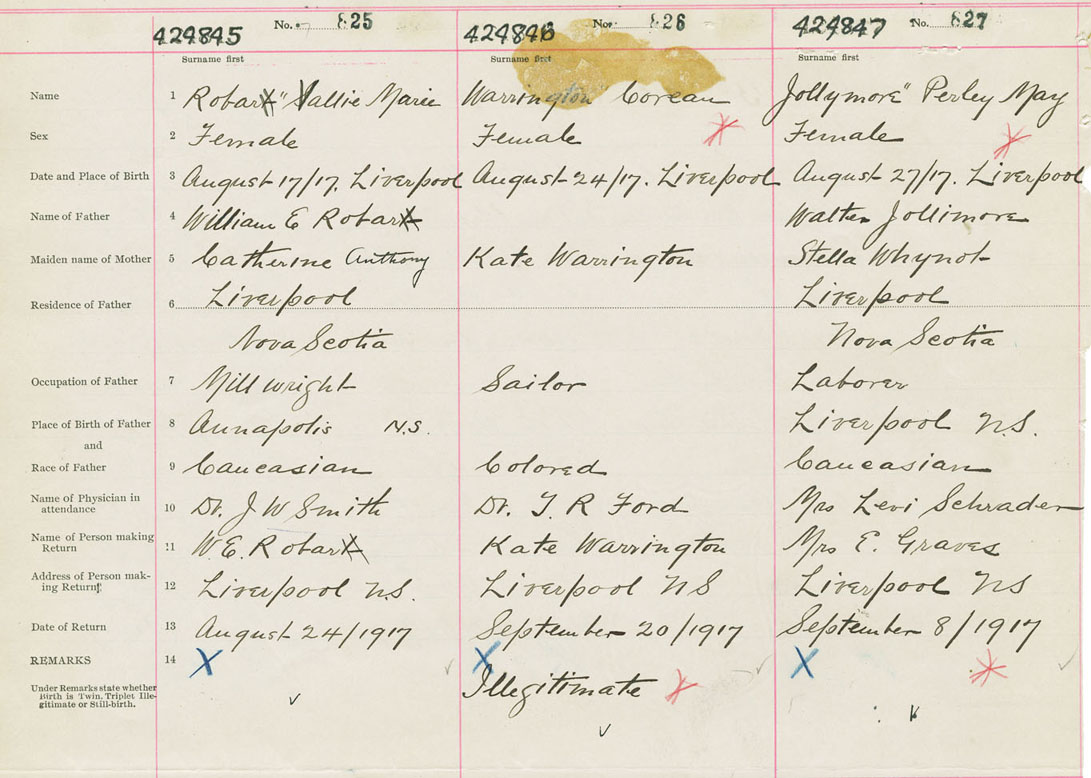 424845 No. 825 424846 No. 826 424847 No. 827
Surname first Surname first Surname first
Name 1 Robart " Sallie Marie Warrington Corean Jollymore" Perley May
Sex 2 Female Female Female
Date and Place of Birth 3 August 17/17. Liverpool August 24/17. Liverpool August 27/17. Liverpool
Name of Father 4 William E Robart Walter Jollimore
Maiden name of Mother 5 Catherine Anthony Kate Warrington Stella Whynot
Residence of Father 6 Liverpool Liverpool
Nova Scotia Nova Scotia
Occupation of Father 7 Millwright Sailor Laborer
Place of Birth of Father 8 Annapolis N.S. Liverpool N.S.
and
Race of Father 9 Caucasian Colored Caucasian
Name of Physician in
attendance 10 Dr. J W Smith Dr. T. R Ford Mrs Levi Schrader
Name of Person making
Return 11 W. E. Robart Kate Warrington Mrs E. Graves
Address of Person mak-
ing Return 12 Liverpool N.S. Liverpool NS Liverpool NS
Date of Return 13 August 24/1917 September 20/1917 September 8/1917
REMARKS 14 X X X
Under Remarks state whether
Birth is Twin, Triplet Ille-
gitimate or Still-birth.
Illegitimate